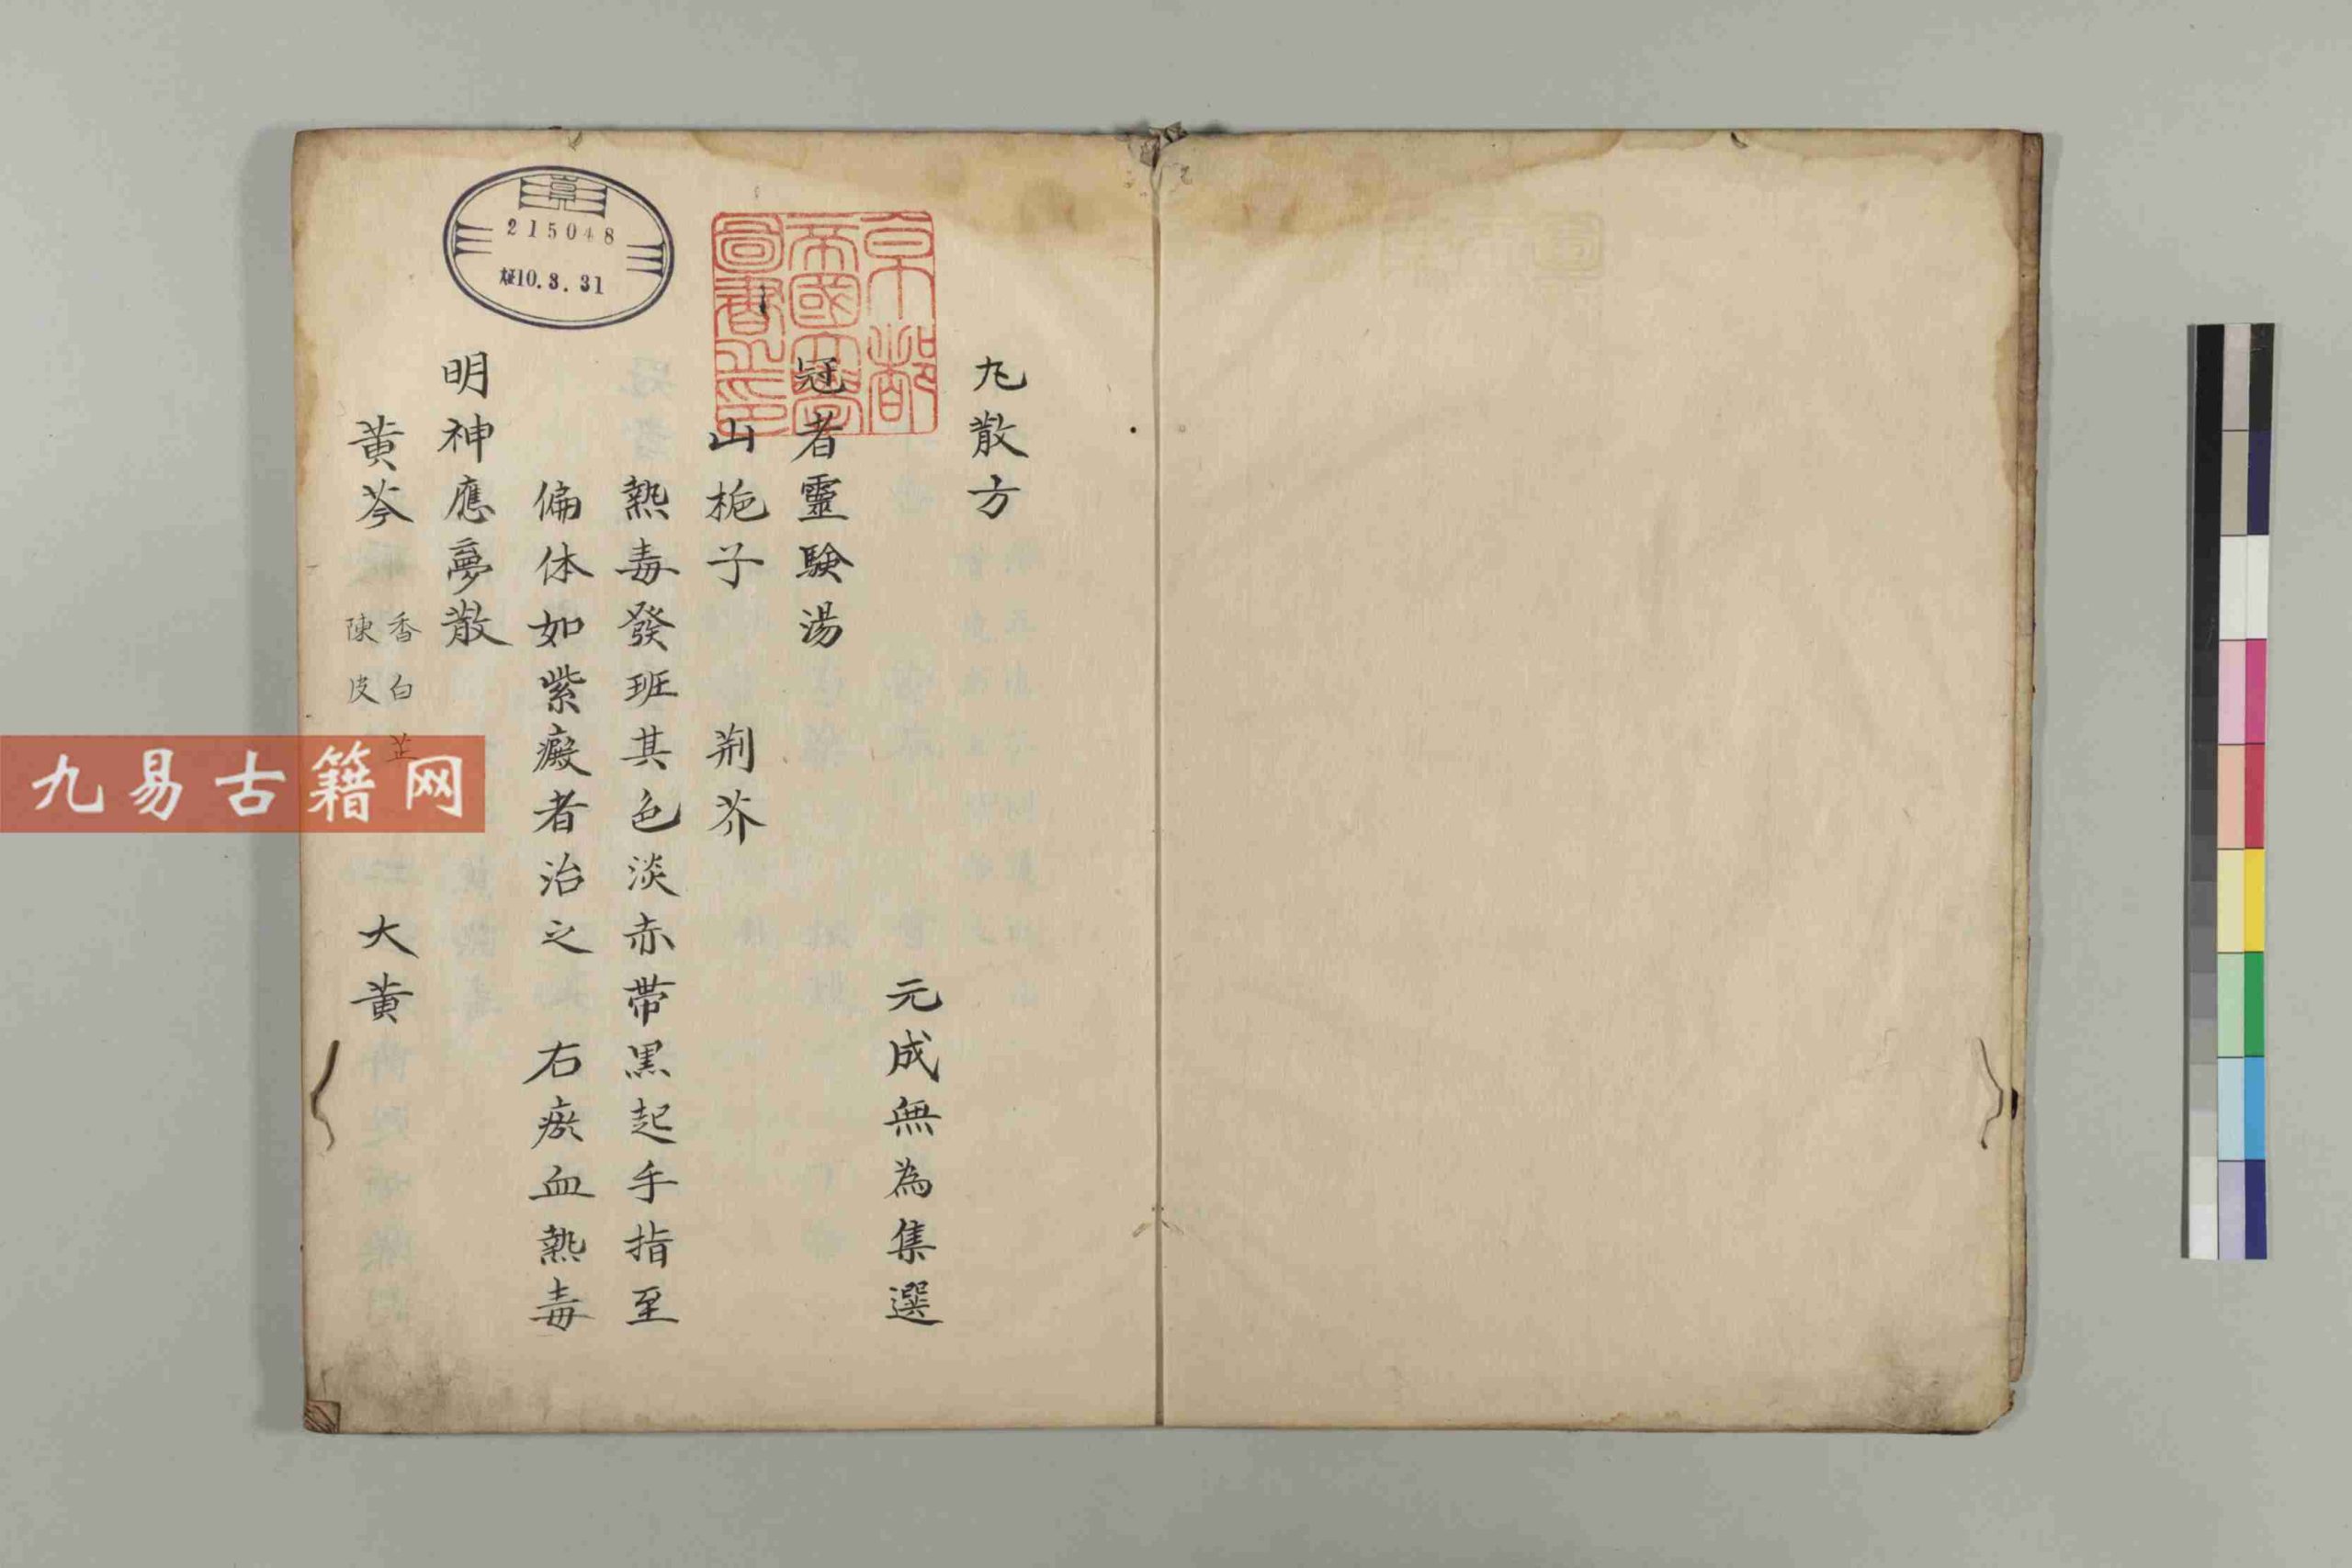 丸散方
元成無為集選
冠者靈験湯
山梔子 荊芥
熱毒發班其色淡赤帶黒起手指至
偏体如紫癜者治之 右瘀血熱毒
明神應夢散
黄芩 香白芷 陳皮 大黄
京都帝國大學圖書之印
215048
大正10.3.31
九易古籍网